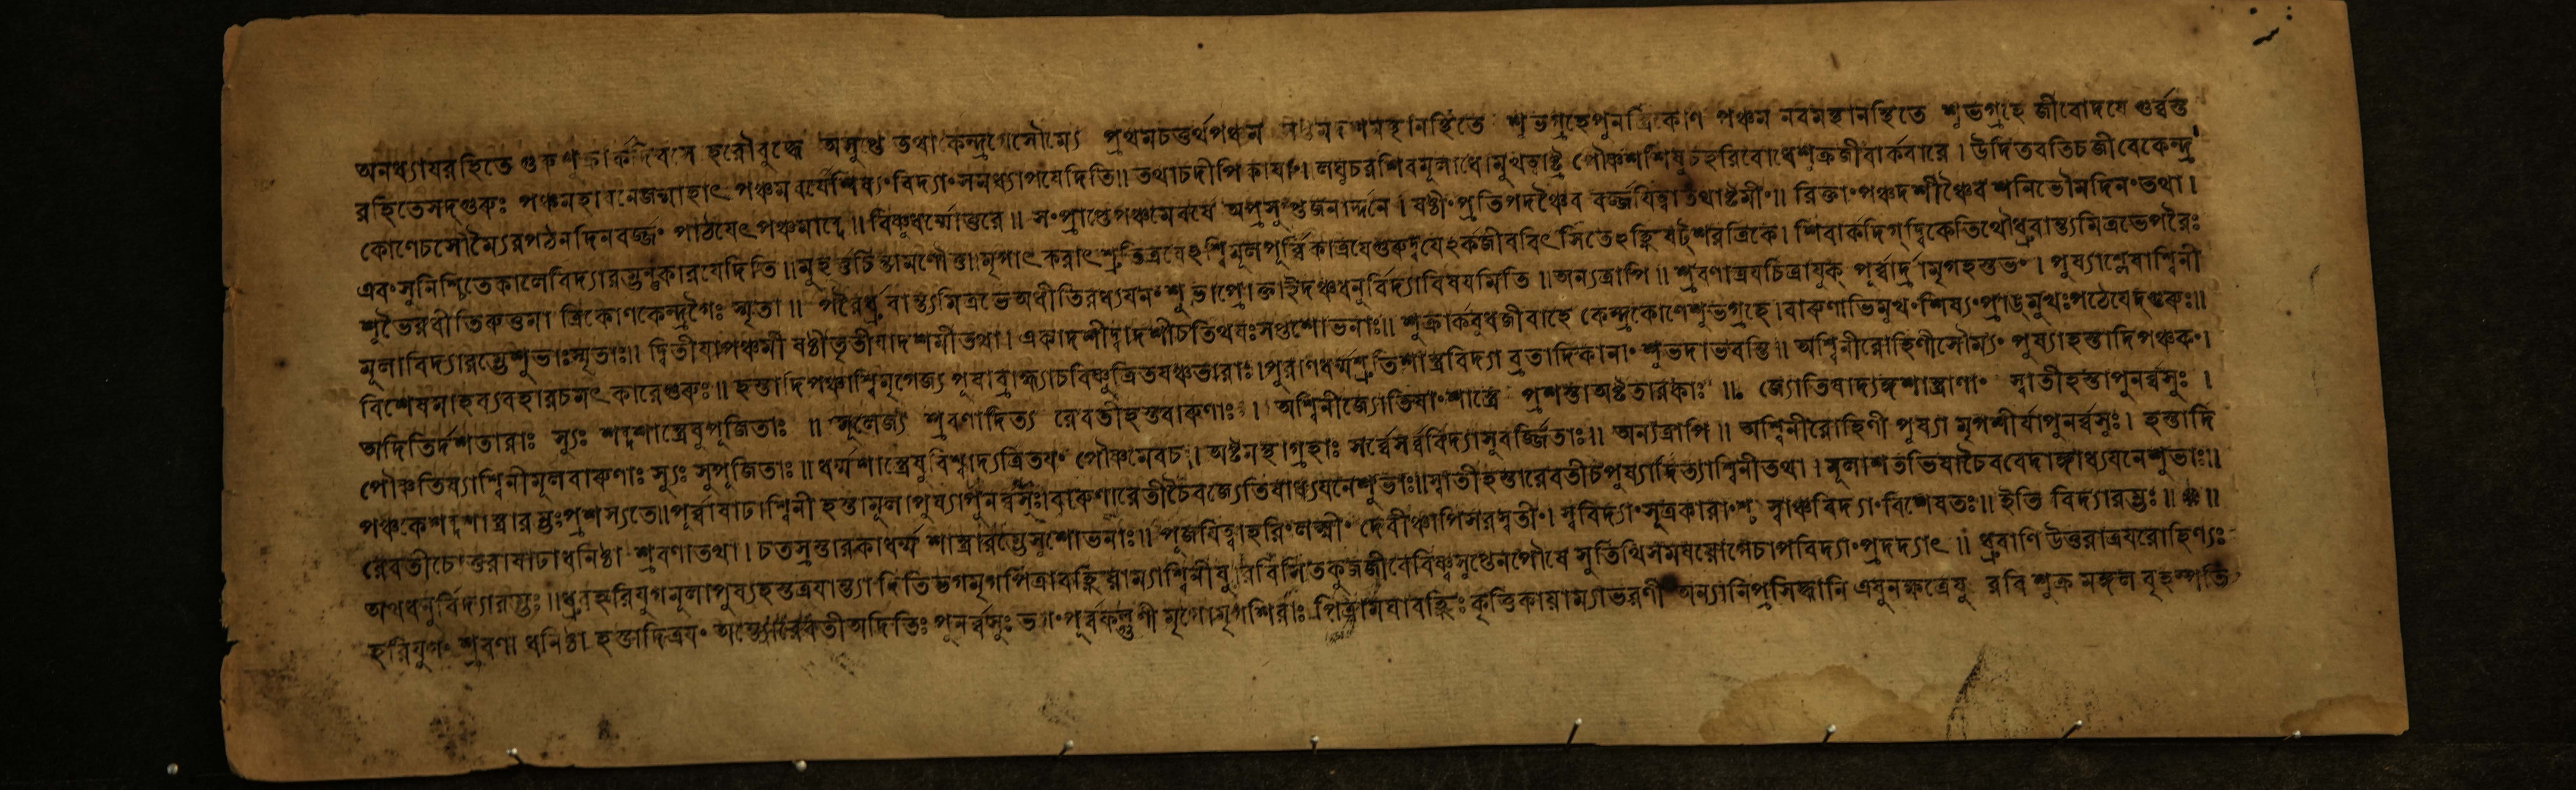 অনধ্যাযরহিতে গুরুশুক্রার্কদিবসে হরৌবুদ্ধে অসুপ্তে তথাকেন্দ্রগেসৌম্যে প্রথমচতুর্থপঞ্চম সপ্তমদশমস্থানস্থিতে শুভগ্রহেপুনর্ত্রিকোণ পঞ্চম নবমস্থানস্থিতে শুভগ্রহে জীবোদযে গুর্ব্বস্ত
রহিতেসদ্গুরুঃ পঞ্চমহাযনেজন্মাহাৎ পঞ্চমবর্ষেশিষ্যং বিদ্যাং সমধ্যাপযেদিতি॥ তথাচদীপিকাযাং। লঘুচরশিবমূলাধোমুখত্বাষ্ট্র পৌষ্ণশশিষুচহরিবোধেশুক্রজীবার্কবারে। উদিতবতিচজীবেকেন্দ্র
কোণেচসৌম্যৈরপঠনদিনবর্জ্জং পাঠযেৎপঞ্চমাব্দে॥ বিষ্ণুধর্ম্মোত্তরে॥ সংপ্রাপ্তেপঞ্চমেবর্ষে অপ্রসুপ্তেজনার্দ্দনে। ষষ্ঠীং প্রতিপদঞ্চৈব বর্জ্জযিত্বাতথাষ্টমীং॥ রিক্তাং পঞ্চদশীঞ্চৈব শনিভৌমদিনং তথা।
এবং সুনিশ্চিতেকালেবিদ্যারম্ভন্তুকারযেদিতি॥ মুহূর্ত্তচিন্তামণৌতু॥ মৃগাৎ করাৎশ্রুতিত্রযেঽশ্বিমূলপূর্ব্বিকাত্রযেগুরুদ্বযেঽর্কজীববিৎসিতেঽহ্নিষট্শরত্রিকে। শিবার্কদিগ্দ্বিকেতিথৌধ্রুবান্ত্যমিত্রভেপরৈঃ
শুভৈরধীতিরুত্তমা ত্রিকোণকেন্দ্রগৈঃ স্মৃতা॥ পরৈর্ধ্রুবান্ত্যমিত্রভেঅধীতিরধ্যযনং শুভাপ্রোক্তাইদঞ্চধনুর্বিদ্যাবিষযমিতি॥ অন্যত্রাপি॥ শ্রবণাত্রযচিত্রাযুক্ পূর্ব্বার্দ্রামৃগহস্তভং। পুষ্যাশ্লেষাশ্বিনী
মূলাবিদ্যারম্ভেশুভাঃস্মৃতাঃ॥ দ্বিতীযাপঞ্চমী ষষ্ঠীতৃতীযাদশমীতথা। একাদশীদ্বাদশীচতিথযঃসপ্তশোভনাঃ॥ শুক্রার্কবুধজীবাহে কেন্দ্রকোণেশুভগ্রহে। বারুণাভিমুখং শিষ্যং প্রাঙ্মুখঃপঠেযেদ্গুরুঃ॥
বিশেষমাহব্যবহারচমৎকারেগুরুঃ॥ হস্তাদিপঞ্চাশ্বিমৃগেজ্য পূষাব্রাহ্ম্যাচবিষ্ণুত্রিতযঞ্চতারাঃ। পুরাণধর্ম্মশ্রুতিশাস্ত্রবিদ্যা ব্রতাদিকানাং শুভদাভবন্তি॥ অশ্বিনীরোহিণীসৌম্যং পুষ্যাহস্তাদিপঞ্চকং।
অদিতির্দশতারাঃ স্যুঃ শব্দশাস্ত্রেষুপূজিতাঃ॥ মূলেজ্য শ্রবণাদিত্য রেবতীহস্তবারুণাঃ। অশ্বিনীজ্যোতিষাং শাস্ত্রে প্রশস্তাঅষ্টতারকাঃ॥ জ্যোতিষাদ্যঙ্গশাস্ত্রাণাং স্বাতীহস্তাপুনর্ব্বসুঃ।
পৌষ্ণতিষ্যাশ্বিনীমূলবারুণাঃ স্যুঃ সুপূজিতাঃ॥ ধর্ম্মশাস্ত্রেষুবিশ্বাদ্যত্রিতযং পৌষ্ণমেবচ। অষ্টমস্থাগ্রহাঃ সর্ব্বেসর্ব্ববিদ্যাসুবর্জ্জিতাঃ॥ অন্যত্রাপি॥ অশ্বিনীরোহিণী পুষ্যা মৃগশীর্ষাপুনর্ব্বসুঃ। হস্তাদি
পঞ্চকেশব্দশাস্ত্রারম্ভঃপ্রশস্যতে॥ পূর্ব্বাষাঢাশ্বিনী হস্তামূলাপুষ্যাপুনর্ব্বসুঃ। বারুণারেতীচৈবজ্যেতিষাধ্যযনেশুভাঃ॥ স্বাতীহস্তারেবতীচপুষ্যাদিত্যাশ্বিনীতথা। মূলাশতভিষাচৈববেদাঙ্গাধ্যযনেশুভাঃ॥
রেবতীচোত্তরাষাঢাধনিষ্ঠা শ্রবণাতথা। চতস্রস্তারকাধর্ম্ম শাস্ত্রারম্ভেসুশোভনাঃ॥ পূজযিত্বাহরিং লক্ষ্মীং দেবীঞ্চাপিসরস্বতীং। স্ববিদ্যাং সূত্রকারাংশ্চ স্বাঞ্চবিদ্যাং বিশেষতঃ॥ ইতি বিদ্যারম্ভঃ॥
অথধনুর্বিদ্যারম্ভঃ॥ ধ্রুবহরিযুগমূলাপুষ্যহস্তত্রযান্ত্যাদিতিভগমৃগপিত্রাবহ্নিয়াম্যাশ্বিনীষু। রবিসিতকুজজীবেবিষ্ণুসুপ্তেনপৌষে সুতিথিসমযযোগেচাপবিদ্যাং প্রদদ্যাৎ॥ ধ্রুবাণি উত্তরাত্রযরোহিণ্যঃ
হরিযুগং শ্রবণা ধনিষ্ঠা হস্তাদিত্রযং অন্ত্যোরেবতীঅদিতিঃ পুনর্ব্বসুঃ ভগং পূর্বফল্গুণী মৃগোমৃগশিরাঃ পিত্রামঘাবহ্নিঃ কৃত্তিকায়াম্যাভরণী অন্যানিপ্রসিদ্ধানি এষুনক্ষত্রেষু রবি শুক্র মঙ্গল বৃহস্পতি